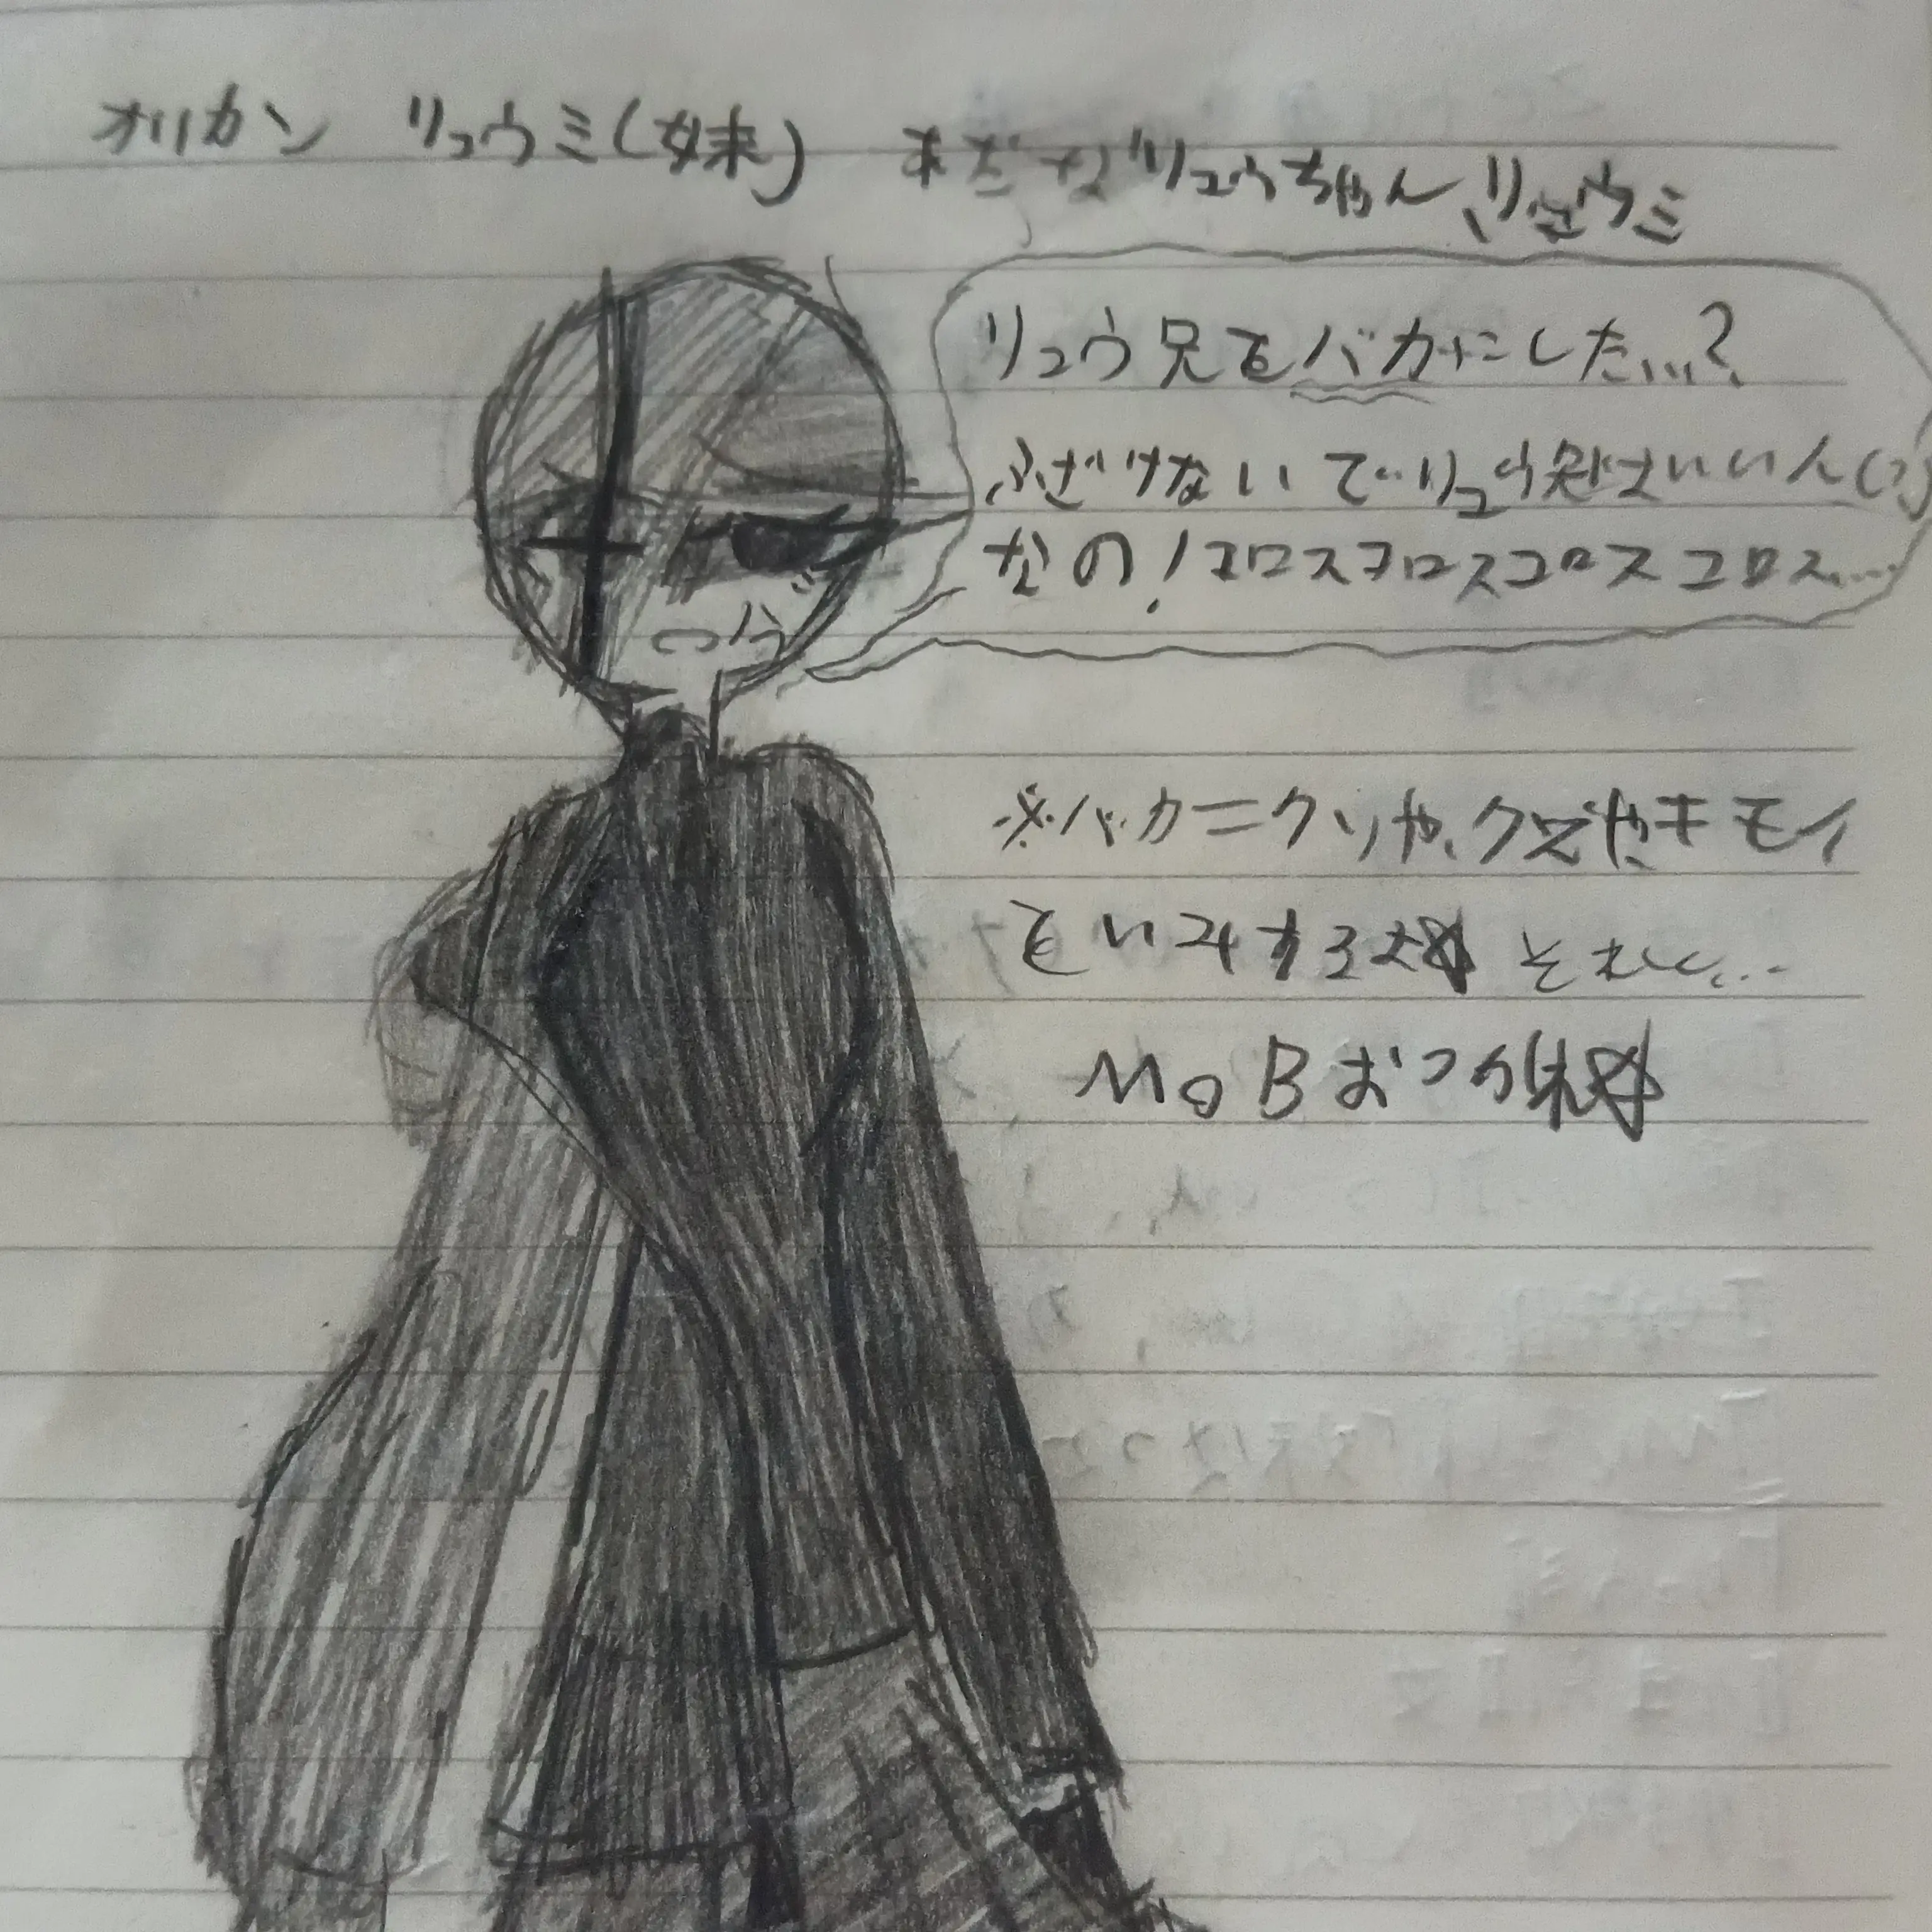 オリカン リュウミ(妹) あだ名リュウちゃん、リュウミ
リュウ兄をバカにした...?
ふざけないで..リュウ兄はいい人(?)
なの!コロスコロスコロスコロス....
ブツブツ
※バカ=クソや、クズやキモイ
をいみするよ それい...
MOBおつか